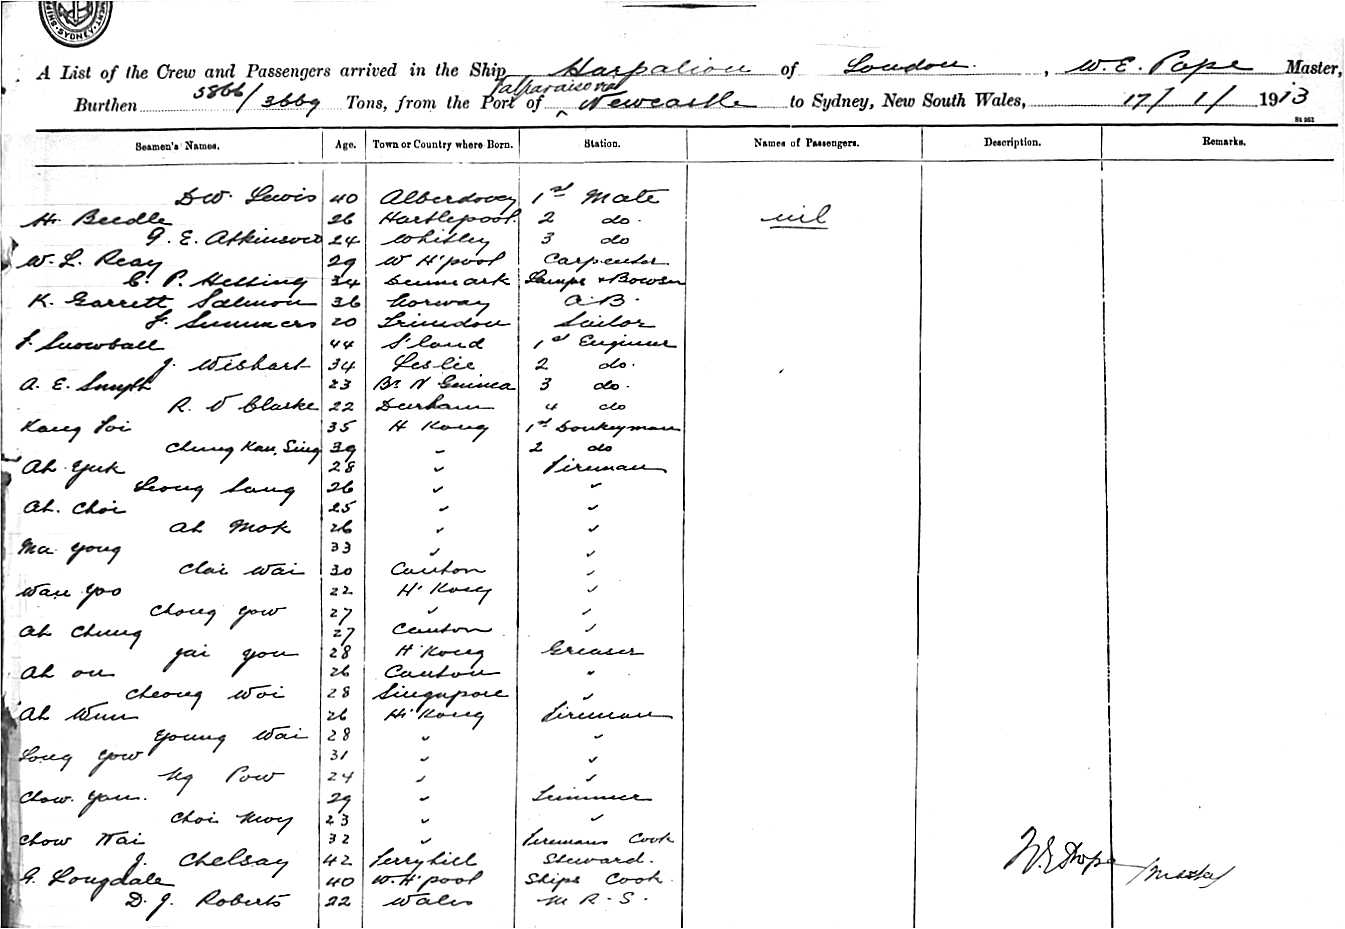 SYDNEY
A List of the Crew and Passengers arrived in the Ship Harpalion of London, W. E. Pope Master,
Burthen 5866/3669 Tons, from the Port of Valparaiso via Newcastle to Sydney, New South Wales, 17/1/1913
Seamen's Names. Age. Town or Country where Born. Station. Names of Passengers. Description. Remarks.
D W. Lewis 40 Alberdovey 1st Mate
H. Beedle 26 Hartlepool. 2 do. nil
G. E. Atkinson 24 Whitley 3 do
W. L. Reay 29 W H'pool Carpenter
C. P. Helsing 34 Denmark Lamps & Bowsen
K. Garrett Salmon 36 Norway A.B.
F. Summers 20 Trimdon Sailor
F. Snowball 44 S'land 1st Engineer
J. Wishart 34 Leslie 2 do.
A. E. Smyth 23 Br. N Guinea 3 do.
R. V Clarke 22 Durham 4 do
Kang Poi 35 H Kong 1st Donkeyman
Chung Kau Sing 39 " 2 do
Ah Yuk 28 " Fireman
Leong Sang 26 " "
Ah. Choi 25 " "
Ah Mok 26 " "
Ma Yong 33 " "
Choi Wai 30 Canton "
Wan Yoo 22 H' Kong "
Chong Yow 27 " "
Ah Chung 27 Canton "
Yai You 28 H'Kong Greaser
Ah On 26 Canton "
Cheong Woi 28 Singapore "
Ah Wun 26 H' Kong Fireman
Young Wai 28 " "
Long Yow 31 " "
Ng Pow 24 " "
Chow Yau. 29 " Trimmer
Choi Moy 23 " "
Chow Wai 32 " Firemans Cook
J. Chelsay 42 Ferryhill Steward.
G. Longdale 40 W. H'pool Ships Cook
D. J. Roberts 22 Wales M. R. S.
W. E. Pope Master